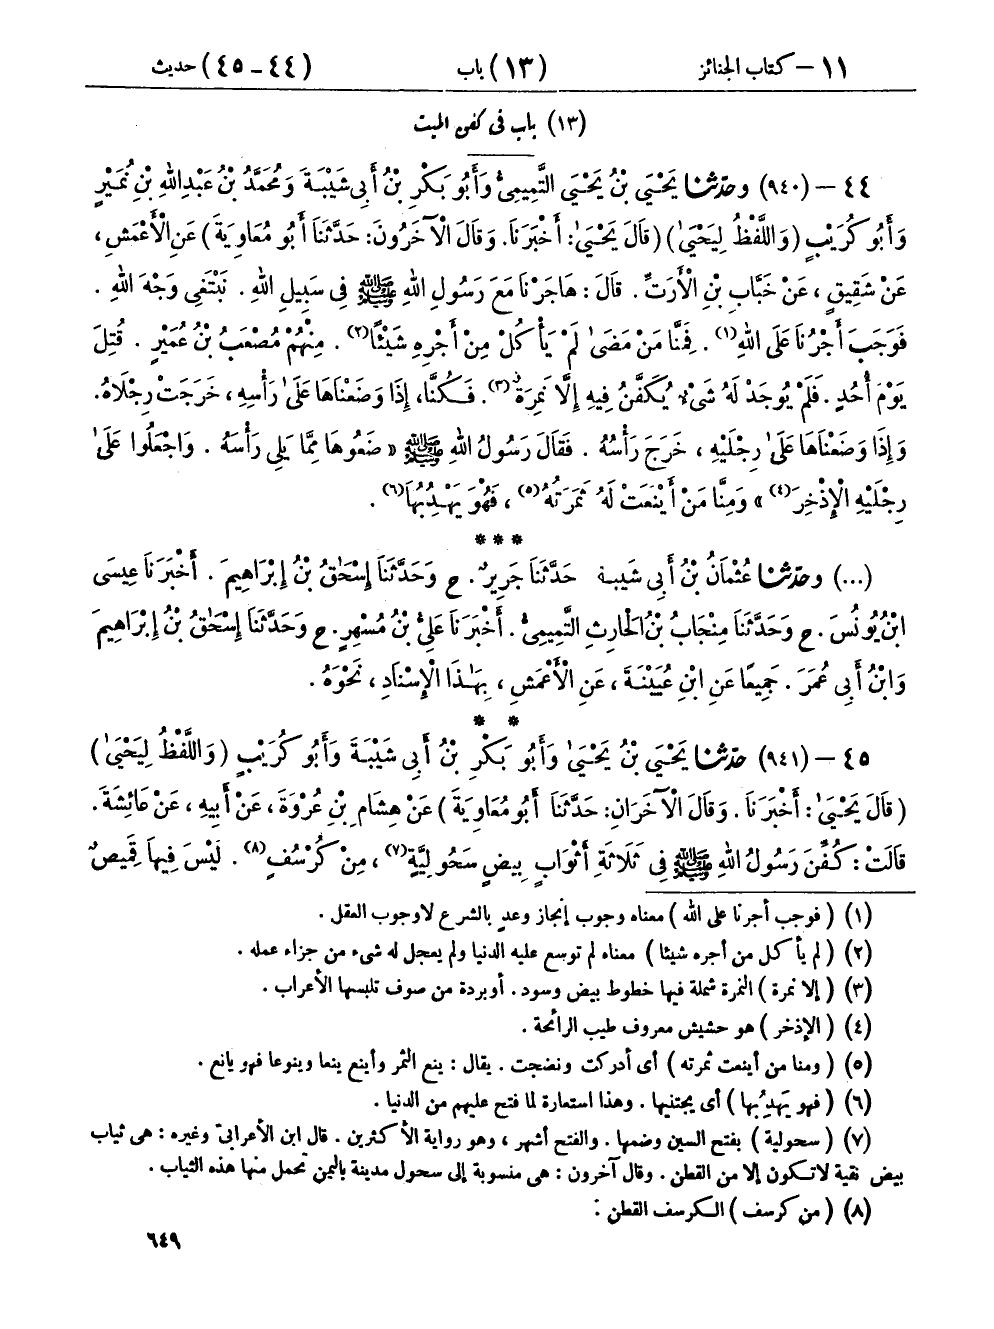 ١١ – كتاب الجنائز (١٣) باب (٤٤ – ٤٥) حديث
(١٣) باب فى كفن الميت
٤٤ – (٩٤٠) وحدّثنا يَحْيَى بْنُ يَحْيَى التَّمِيمِىُّ وَأَبُو بَكْرِ بْنُ أَبِى شَيْبَةَ وَمُحَمَّدُ بْنُ عَبْدِاللهِ بْنِ نُمَيْرٍ
وَأَبُو كُرَيْبٍ (وَاللَّفْظُ لِيَحْيَىٰ) (قَالَ يَحْيَىٰ: أَخْبَرَنَا. وَقَالَ الْآخَرُونَ: حَدَّثَنَا أَبُو مُعَاوِيَةَ) عَنِ الْأَعْمَشِ،
عَنْ شَقِيقٍ، عَنْ خَبَّابِ بْنِ الْأَرَتِّ. قَالَ: هَاجَرْنَا مَعَ رَسُولِ اللهِ ﷺ فِى سَبِيلِ اللهِ. نَبْتَغِى وَجْهَ اللهِ.
فَوَجَبَ أَجْرُنَا عَلَى اللهِ(١). فَمِنَّا مَنْ مَضَىٰ لَمْ يَأْكُلْ مِنْ أَجْرِهِ شَيْئًا(٢). مِنْهُمْ مُصْعَبُ بْنُ عُمَيْرٍ. قُتِلَ
يَوْمَ أُحُدٍ. فَلَمْ يُوجَدْ لَهُ شَىْءٌ يُكَفَّنُ فِيهِ إِلَّا نَمِرَةٌ(٣). فَكُنَّا، إِذَا وَضَعْنَاهَا عَلَىٰ رَأْسِهِ، خَرَجَتْ رِجْلَاهُ.
وَإِذَا وَضَعْنَاهَا عَلَىٰ رِجْلَيْهِ، خَرَجَ رَأْسُهُ. فَقَالَ رَسُولُ اللهِ ﷺ « ضَعُوهَا مِمَّا يَلِى رَأْسَهُ. وَاجْعَلُوا عَلَىٰ
رِجْلَيْهِ الْإِذْخِرَ(٤) » وَمِنَّا مَنْ أَيْنَعَتْ لَهُ ثَمَرَتُهُ(٥)، فَهُوَ يَهْدِبُهَا(٦).
* * *
(...) وحدّثنا عُثْمَانُ بْنُ أَبِى شَيْبَةَ حَدَّثَنَا جَرِيرٌ. ح وَحَدَّثَنَا إِسْحَٰقُ بْنُ إِبْرَاهِيمَ. أَخْبَرَنَا عِيسَى
ابْنُ يُونُسَ. ح وَحَدَّثَنَا مِنْجَابُ بْنُ الْحَارِثِ التَّمِيمِىُّ. أَخْبَرَنَا عَلِىُّ بْنُ مُسْهِرٍ. ح وَحَدَّثَنَا إِسْحَٰقُ بْنُ إِبْرَاهِيمَ
وَابْنُ أَبِى عُمَرَ. جَمِيعًا عَنِ ابْنِ عُيَيْنَةَ، عَنِ الْأَعْمَشِ، بِهَٰذَا الْإِسْنَادِ، نَحْوَهُ.
* *
٤٥ – (٩٤١) حدّثنا يَحْيَى بْنُ يَحْيَىٰ وَأَبُو بَكْرِ بْنُ أَبِى شَيْبَةَ وَأَبُو كُرَيْبٍ (وَاللَّفْظُ لِيَحْيَىٰ)
(قَالَ يَحْيَىٰ: أَخْبَرَنَا. وَقَالَ الْآخَرَانِ: حَدَّثَنَا أَبُو مُعَاوِيَةَ) عَنْ هِشَامِ بْنِ عُرْوَةَ، عَنْ أَبِيهِ، عَنْ عَائِشَةَ.
قَالَتْ: كُفِّنَ رَسُولُ اللهِ ﷺ فِى ثَلَاثَةِ أَثْوَابٍ بِيضٍ سَحُولِيَّةٍ(٧)، مِنْ كُرْسُفٍ(٨). لَيْسَ فِيهَا قَمِيصٌ
(١) (فوجب أجرنا على الله) معناه وجوب إنجاز وعد بالشرع لا وجوب العقل.
(٢) (لم يأكل من أجره شيئا) معناه لم توسع عليه الدنيا ولم يعجل له شىء من جزاء عمله.
(٣) (إلا نمرة) النمرة شملة فيها خطوط بيض وسود. أو بردة من صوف تلبسها الأعراب.
(٤) (الإذخر) هو حشيش معروف طيب الرائحة.
(٥) (ومنا من أينعت ثمرته) أى أدركت ونضجت. يقال: ينع الثمر وأينع ينعا وينوعا فهو يانع.
(٦) (فهو يَهدِبُها) أى يجتنيها. وهذا استعارة لما فتح عليهم من الدنيا.
(٧) (سحولية) بفتح السين وضمها. والفتح أشهر، وهو رواية الأكثرين. قال ابن الأعرابىّ وغيره: هى ثياب
بيض نقية لا تكون إلا من القطن. وقال آخرون: هى منسوبة إلى سحول مدينة باليمن تحمل منها هذه الثياب.
(٨) (من كرسف) الكرسف القطن:
٦٤٩